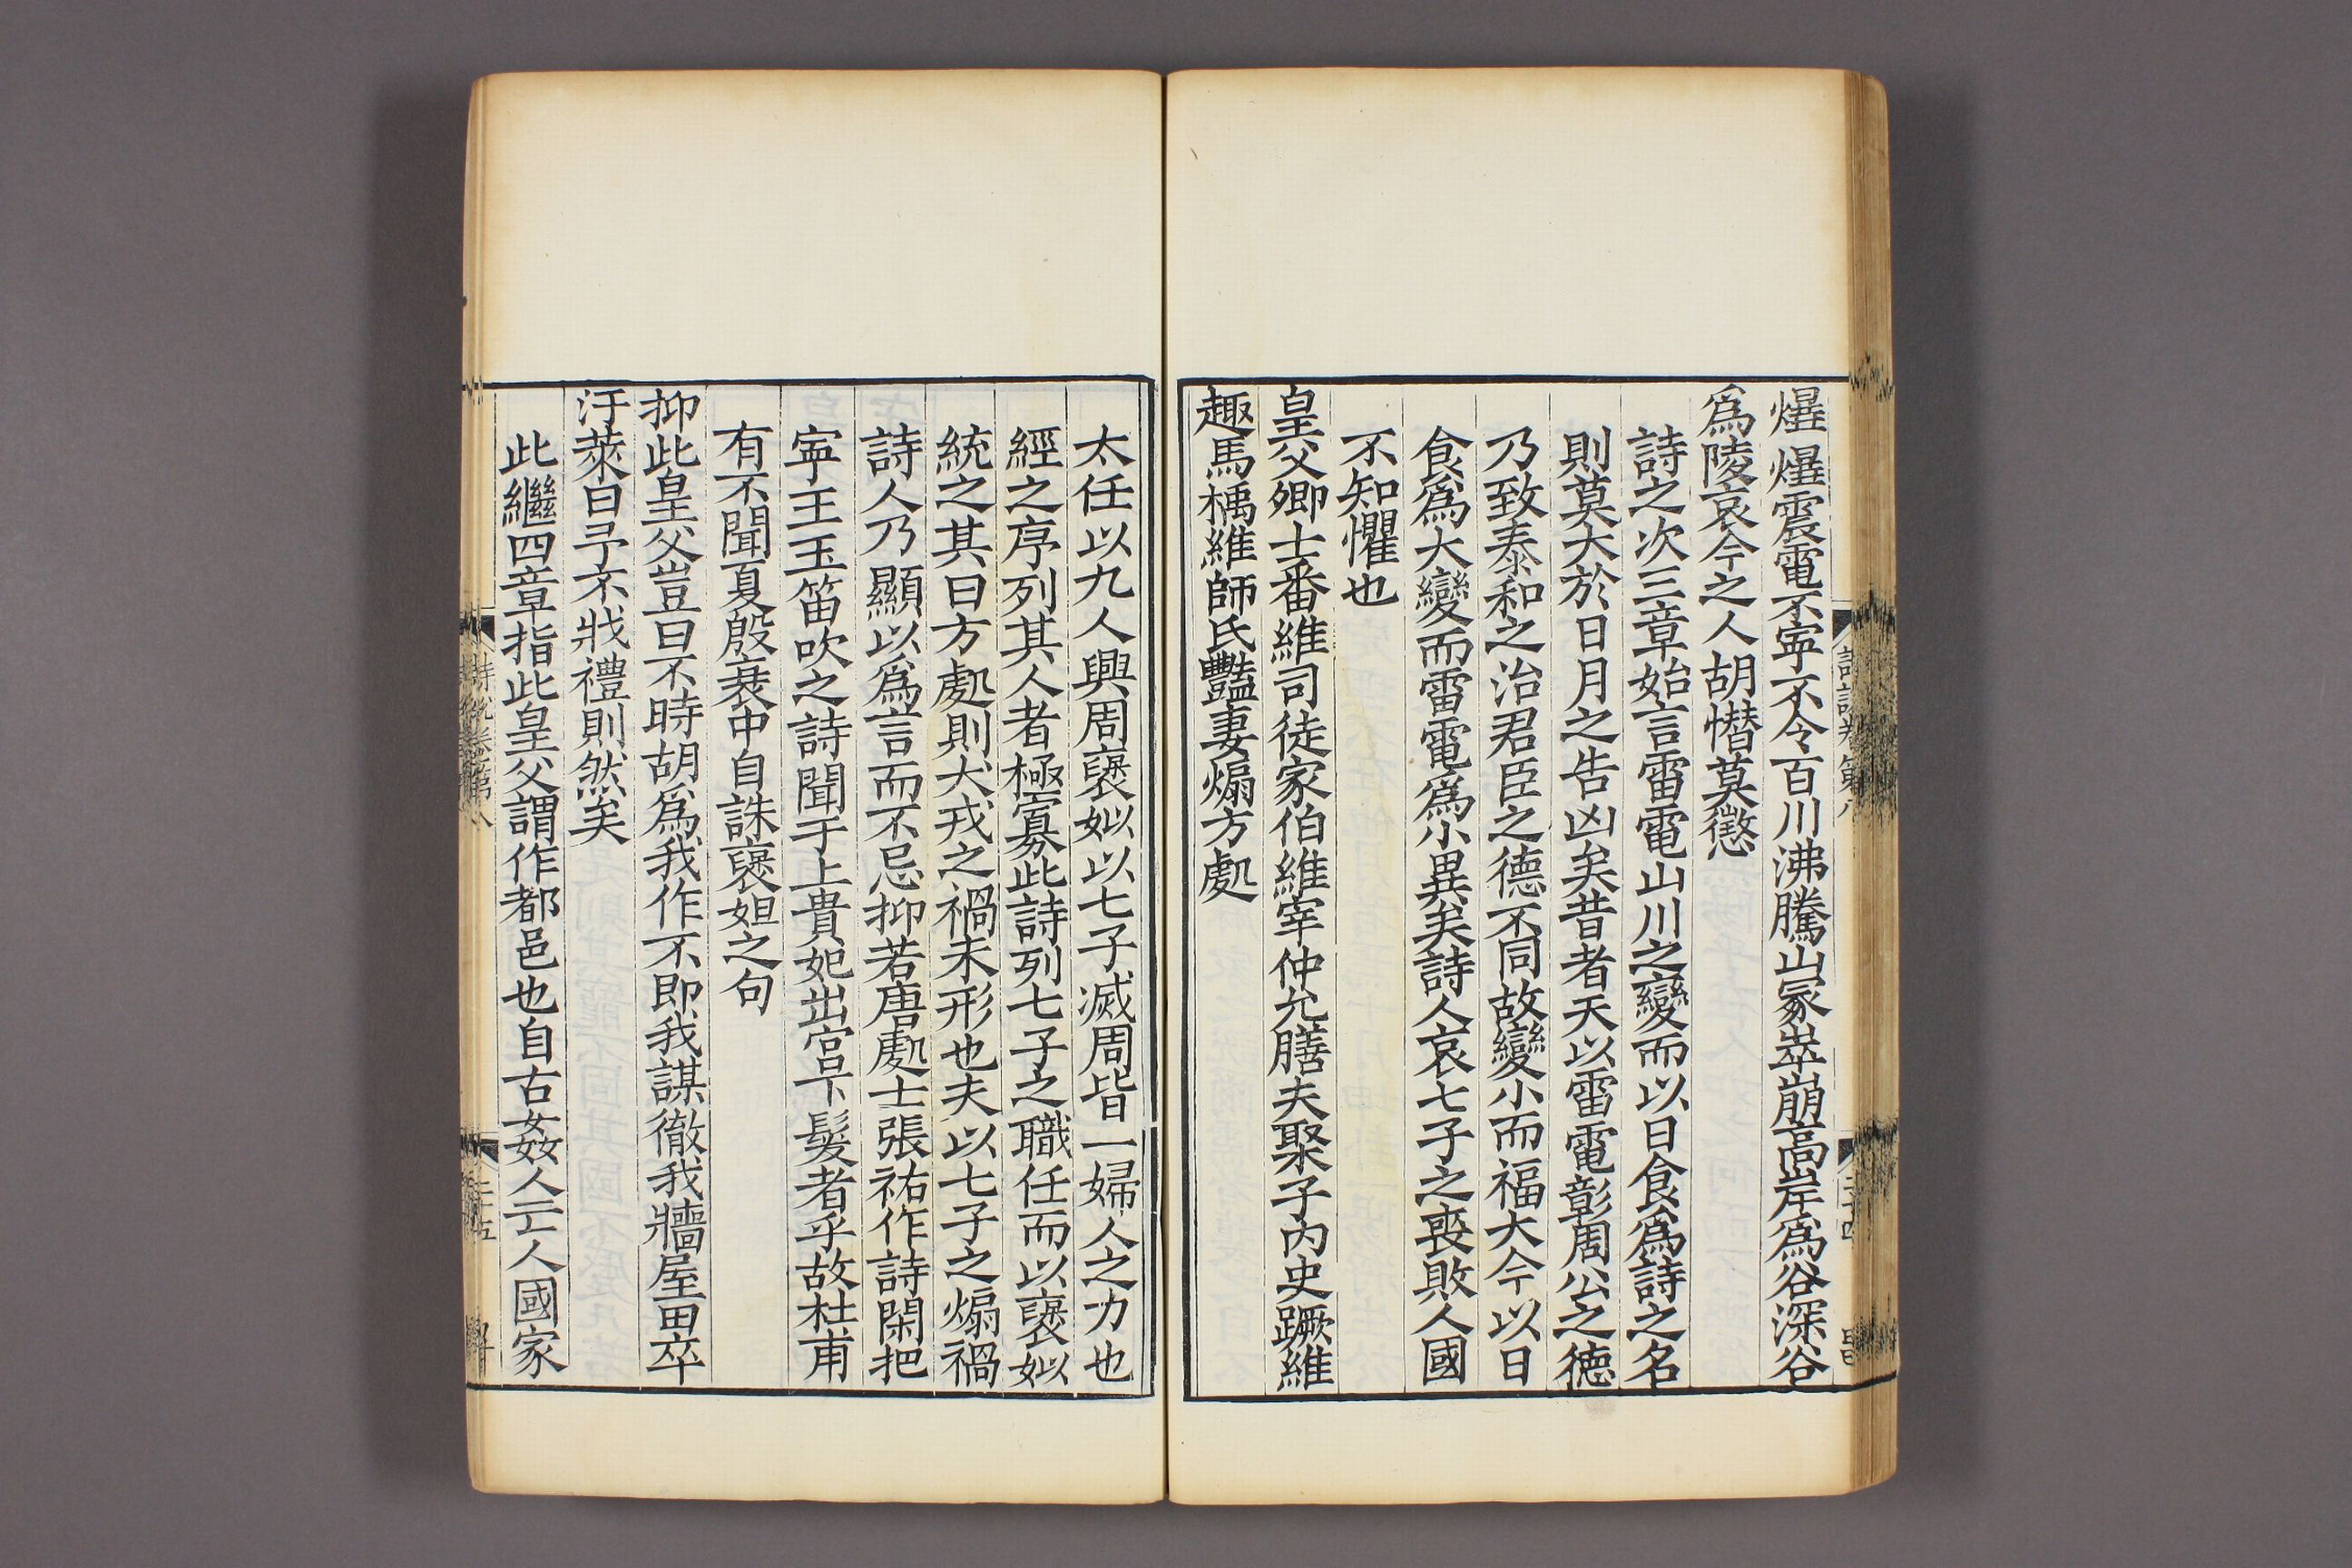 爗爗震電不寧不令百川沸騰山冢崒崩高岸爲谷深谷
爲陵哀今之人胡憯莫懲
詩之次三章始言雷電山川之變而以日食爲詩之名
則莫大於日月之告凶矣昔者天以雷電彰周公之德
乃致泰和之治君臣之德不同故變小而福大今以日
食爲大變而雷電爲小異矣詩人哀七子之喪敗人國
不知懼也
皇父卿士番維司徒家伯維宰仲允膳夫聚子内史蹶維
趣馬楀維師氏豔妻煽方處
太任以九人興周襃姒以七子滅周皆一婦人之力也
經之序列其人者極寡此詩列七子之職任而以襃姒
統之其曰方處則犬戎之禍未形也夫以七子之煽禍
詩人乃顯以爲言而不忌抑若唐處士張祜作詩閑把
寧王玉笛吹之詩聞于上貴妃出宮下髮者乎故杜甫
有不聞夏殷衰中自誅襃妲之句
抑此皇父豈曰不時胡爲我作不即我謀徹我牆屋田卒
汙萊曰予不戕禮則然矣
此繼四章指此皇父謂作都邑也自古姦人亡人國家
詩說卷第八
二十五